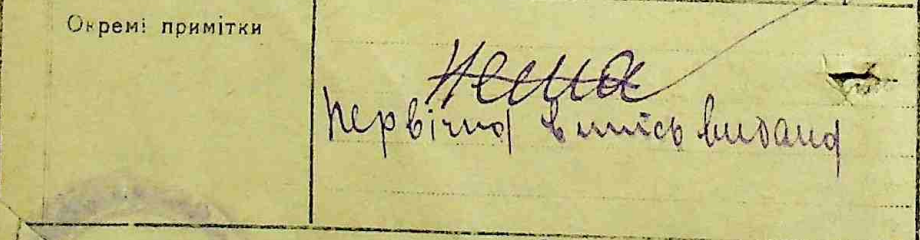 Окремі примітки
Нема
Первічна випись видана